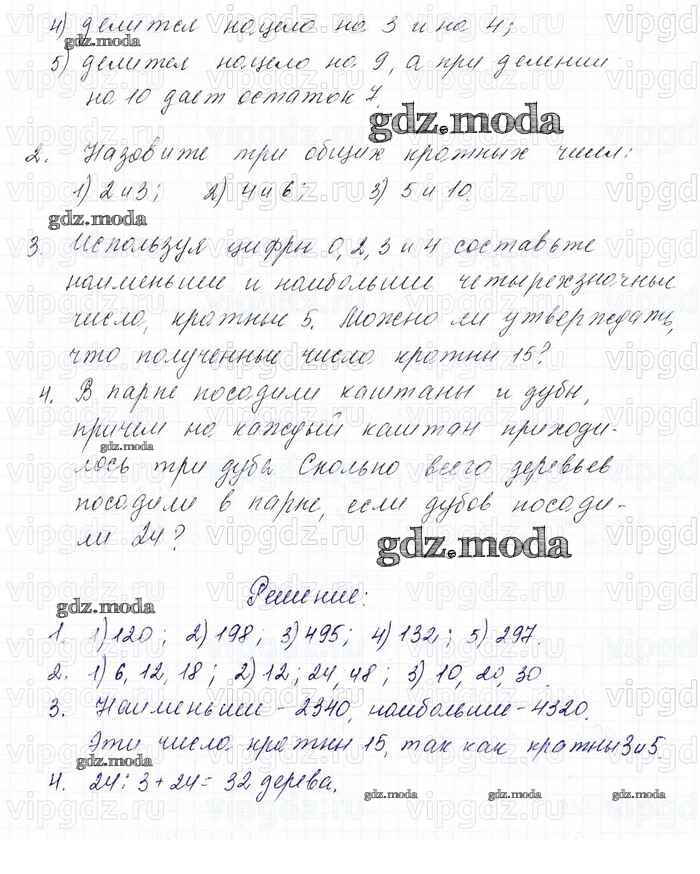 4) делится нацело на 3 и на 4;
gdz.moda
5) делится нацело на 9, а при делении
на 10 дает остаток 7.
gdz.moda
2. Назовите три общих кратных чисел:
1) 2 и 3; 2) 4 и 6; 3) 5 и 10.
gdz.moda
3. Используя цифры 0, 2, 3 и 4 составьте
наименьшие и наибольшие четырехзначные
число, кратные 5. Можно ли утверждать,
что полученные число кратны 15?
4. В парке посадили каштаны и дубы,
причем на каждый каштан приходи-
gdz.moda
лось три дуба. Сколько всего деревьев
посадили в парке, если дубов посади-
ли 24?
gdz.moda
Решение:
gdz.moda
1. 1) 120; 2) 198; 3) 495; 4) 132; 5) 297.
2. 1) 6, 12, 18; 2) 12; 24, 48; 3) 10, 20, 30.
3. Наименьшие - 2340, наибольшие - 4320.
Эти число кратны 15, так как кратны 3 и 5.
gdz.moda
4. 24 : 3 + 24 = 32 дерева.
gdz.moda gdz.moda gdz.moda